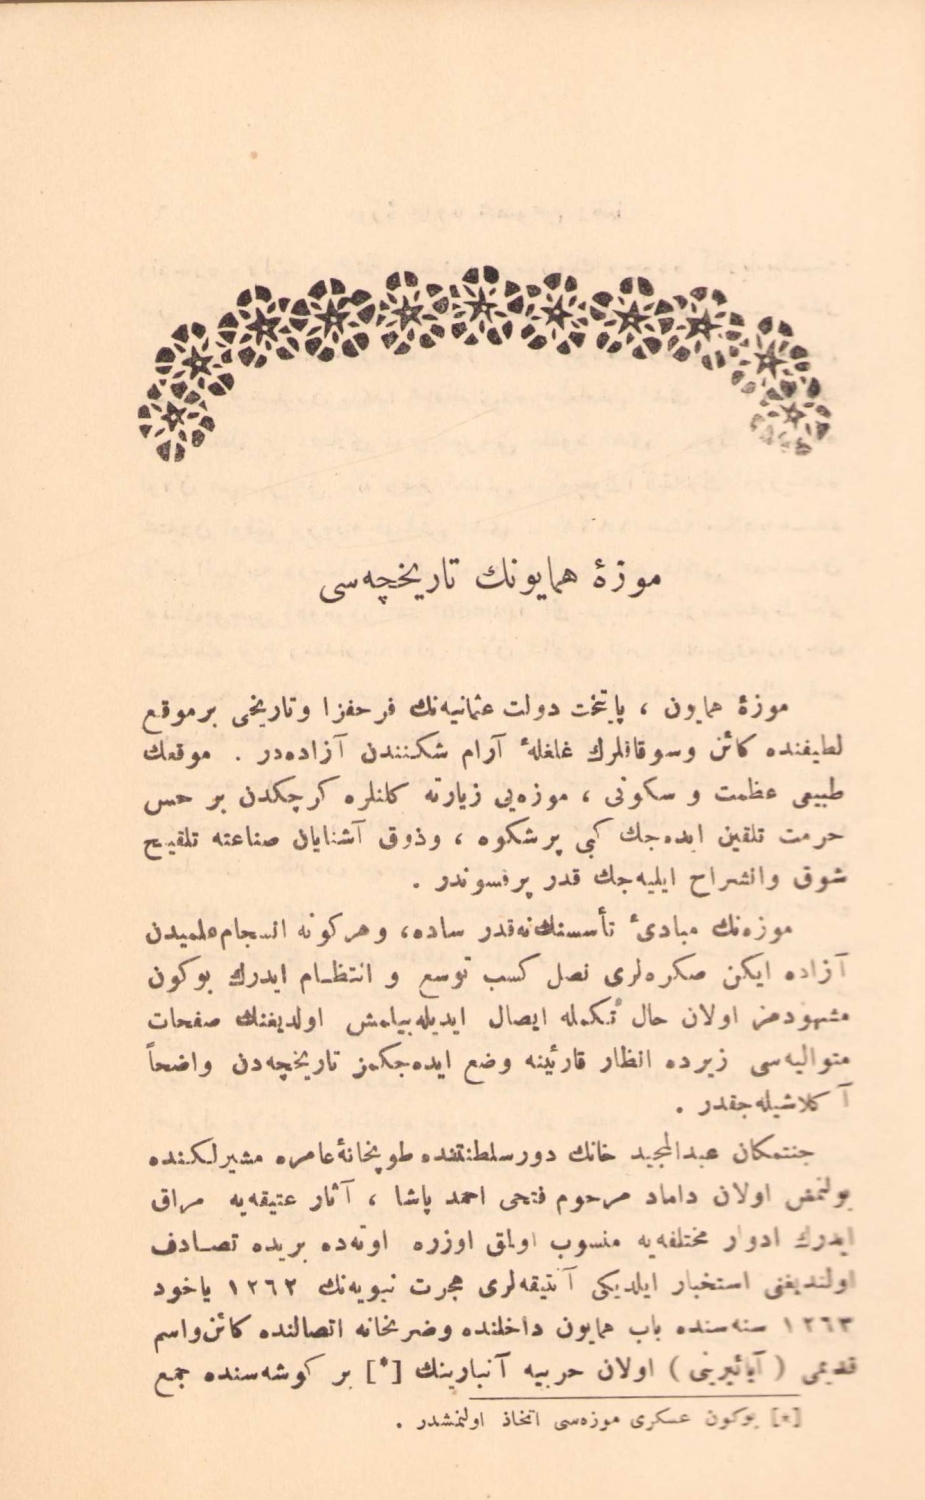 موزهٔ همایونك تاریخچه‌سی
موزهٔ همایون ، پایتخت دولت عثمانیه‌نك فرحفزا وتاریخی برموقع
لطیفنده كائن وسوقاقلرك غلغلهٔ آرام شكنندن آزاده‌در . موقعك
طبیعی عظمت و سكوتی ، موزه‌یی زیارته كلنلره كرچكدن بر حس
حرمت تلقین ایده‌جك كبی پرشكوه ، وذوق آشنایان صناعته تلقیح
شوق وانشراح ایلیه‌جك قدر پرفسوندر .
موزه‌نك مبادیٔ تأسسنك‌نه‌قدر ساده، وهركونه انسجام‌علمیدن
آزاده ایكن صكره‌لری نصل كسب توسع و انتظام ایدرك بوكون
مشهودمز اولان حال تكمله ایصال ایدیله‌بیلمش اولدیغنك صفحات
متوالیه‌سی زیرده انظار قارئینه وضع ایده‌جكمز تاریخچه‌دن واضحاً
آكلاشیله‌جقدر .
جنتمكان عبدالمجید خانك دورسلطنتنده طوپخانهٔ عامره مشیرلكنده
بولنمش اولان داماد مرحوم فتحی احمد پاشا ، آثار عتیقه‌یه مراق
ایدرك ادوار مختلفه‌یه منسوب اولمق اوزره اوته‌ده بریده تصادف
اولندیغنی استخبار ایلدیكی آنتیقه‌لری هجرت نبویه‌نك ١٢٦٢ یاخود
١٢٦٣ سنه‌سنده باب همایون داخلنده وضربخانه اتصالنده كائن‌واسم
قدیمی ( آیائیرینی ) اولان حربیه آنبارینك [*] بر كوشه‌سنده جمع
[*] بوكون عسكری موزه‌سی اتخاذ اولنمشدر .